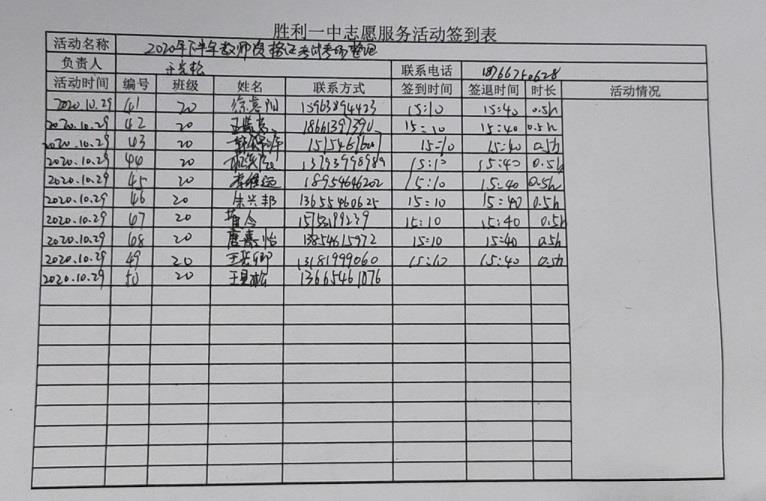 胜利一中志愿服务活动签到表
活动名称 2020年下半年教师资格证考试考场整理
负责人 联系电话 18766750628
活动时间 编号 班级 姓名 联系方式 签到时间 签退时间 时长 活动情况
2020.10.29 41 20 15963894423 15:10 15:40 0.5h
2020.10.29 42 20 15:10 15:40 0.5h
2020.10.29 43 20 15:10 15:40 0.5h
2020.10.29 44 20 15:10 15:40 0.5h
2020.10.29 45 20 18954646202 15:10 15:40 0.5h
2020.10.29 46 20 朱兴邦 13655460625 15:10 15:40 0.5h
2020.10.29 47 20 15:10 15:40 0.5h
2020.10.29 48 20 唐嘉怡 13854615972 15:10 15:40 0.5h
2020.10.29 49 20 13181999060 15:10 15:40 0.5h
2020.10.29 50 20 13665461076